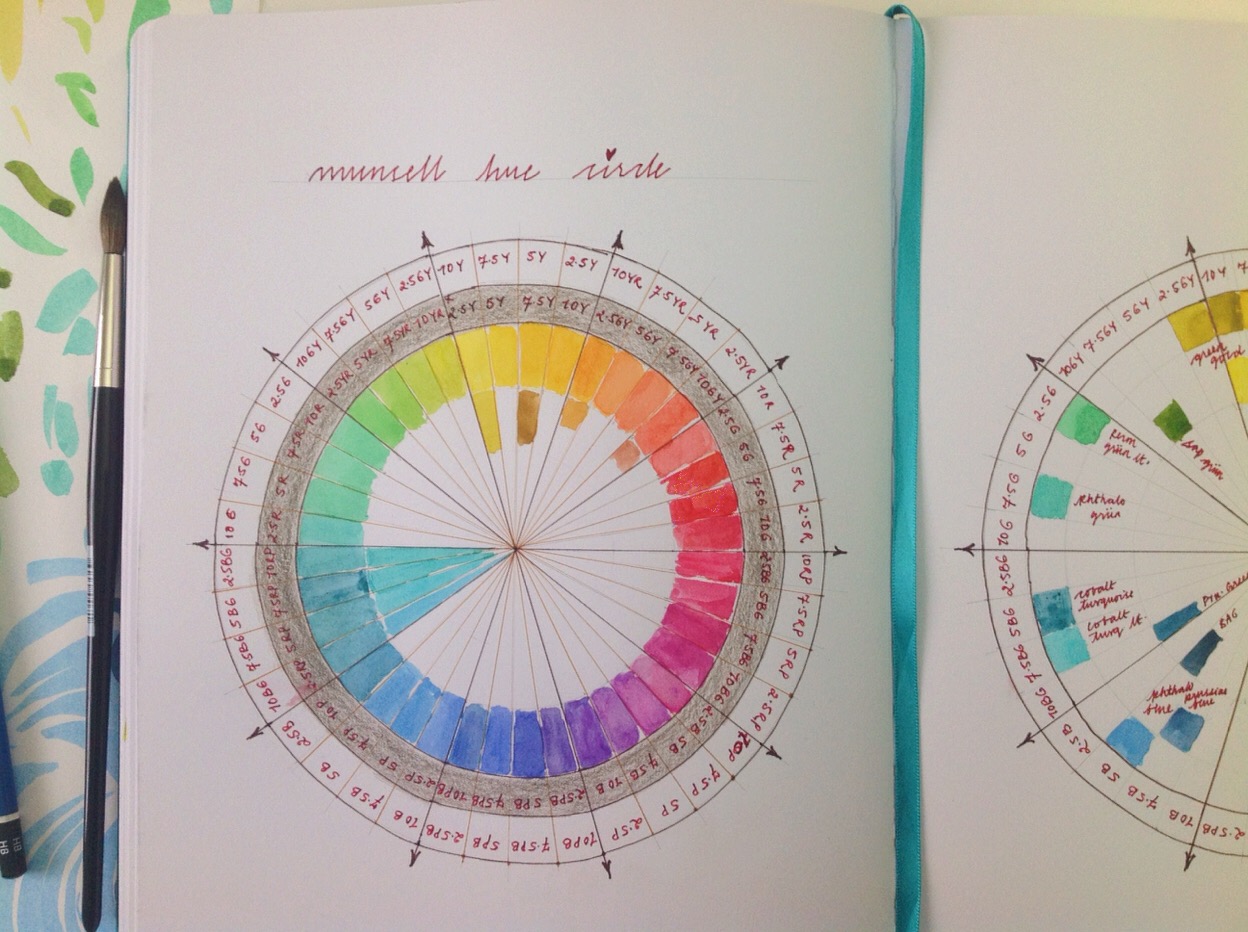 munsell hue circle
10Y
7.5Y
5Y
2.5Y
10YR
7.5YR
5YR
2.5YR
10R
7.5R
5R
2.5R
10RP
7.5RP
5RP
2.5RP
10P
7.5P
5P
2.5P
10PB
7.5PB
5PB
2.5PB
10B
7.5B
5B
2.5B
10BG
7.5BG
5BG
2.5BG
10G
7.5G
5G
2.5G
10GY
7.5GY
5GY
2.5GY
2.5Y
5Y
7.5Y
10Y
2.5GY
5GY
7.5GY
10GY
2.5G
5G
7.5G
10G
2.5BG
5BG
7.5BG
10BG
2.5B
5B
7.5B
10B
2.5PB
5PB
7.5PB
10PB
2.5P
5P
7.5P
10P
2.5RP
5RP
7.5RP
10RP
2.5R
5R
7.5R
10R
2.5YR
5YR
7.5YR
10YR
HB
HB
2.5PB
10B
7.5B
5B
2.5B
10BG
7.5BG
5BG
2.5BG
10G
7.5G
5G
2.5G
10GY
7.5GY
5GY
2.5GY
10Y
green
gold
perm
grün lt.
sap grün
phthalo
grün
cobalt
turquoise
cobalt
turq lt.
phthalo
blue
prussian
blue